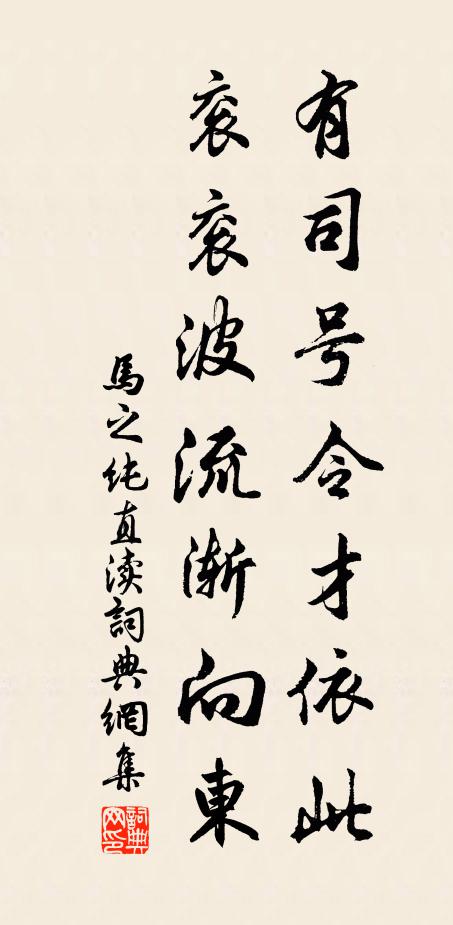 有司号令才依此
衮衮波流渐向東
馬之纯直渎詞典網集
詞典网印